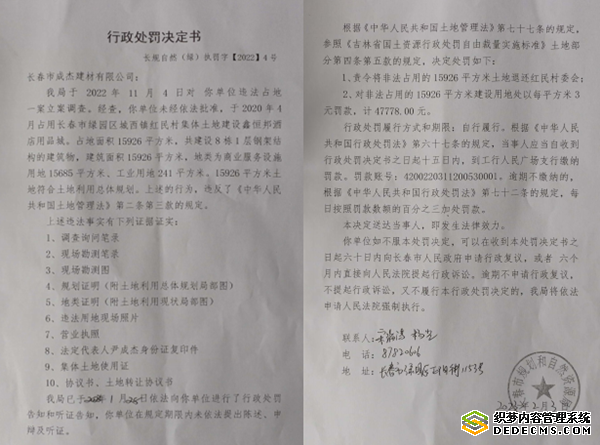 行政处罚决定书
长规自然（绿）执罚字【2022】4号
长春市成杰建材有限公司：
我局于 2022 年 11 月 4 日对 你单位违法占地
一案立案调查。经查，你单位未经依法批准，于 2020 年 4
月占用长春市绿园区城西镇红民村集体土地建设鑫恒邦酒
店用品城。占地面积 15926 平方米，共建设 8 栋 1 层钢架结
构的建筑物，建筑面积 15926 平方米，地类为商业服务设施
用地 15685 平方米、工业用地 241 平方米。15926 平方米土
地符合土地利用总体规划。上述的行为，违反了《中华人民
共和国土地管理法》第二条第三款的规定。
上述违法事实有下列证据证实：
1、调查询问笔录
2、现场勘测笔录
3、现场勘测图
4、规划证明（附土地利用总体规划局部图）
5、地类证明（附土地利用现状局部图）
6、违法用地现场照片
7、营业执照
8、法定代表人尹成杰身份证复印件
9、集体土地使用证
10、协议书、土地转让协议书
我局已于 年 1 月 日依法向你单位进行了行政处罚
告知和听证告知，你单位在规定期限内未依法提出陈述、申
辩及听证。
根据《中华人民共和国土地管理法》第七十七条的规定，
参照《吉林省国土资源行政处罚自由裁量实施标准》土地部
分第四条第五款的规定，决定处罚如下：
1、责令将非法占用的 15926 平方米土地退还红民村委会；
2、对非法占用的 15926 平方米建设用地处以每平方米 3
元罚款，计 47778.00 元。
行政处罚履行方式和期限：自行履行。根据《中华人民
共和国行政处罚法》第六十七条的规定，当事人应当自收到
行政处罚决定书之日起十五日内，到工行人民广场支行缴纳
罚款。罚款账号：4200220311200530001。逾期不缴纳的，
根据《中华人民共和国行政处罚法》第七十二条的规定，每
日按罚款数额的百分之三加处罚款。
本决定送达当事人，即发生法律效力。
你单位如不服本处罚决定，可以在收到本处罚决定书之
日起六十日内向长春市人民政府申请行政复议，或者 六个
月内直接向人民法院提起行政诉讼。逾期不申请行政复议，
不提起行政诉讼，又不履行本行政处罚决定的，我局将依法
申请人民法院强制执行。
联系人：
电 话：87820606
地 址：长春市 1153号
长春市规划和自然资源局
织梦内容管理系统
DEDECMS.COM